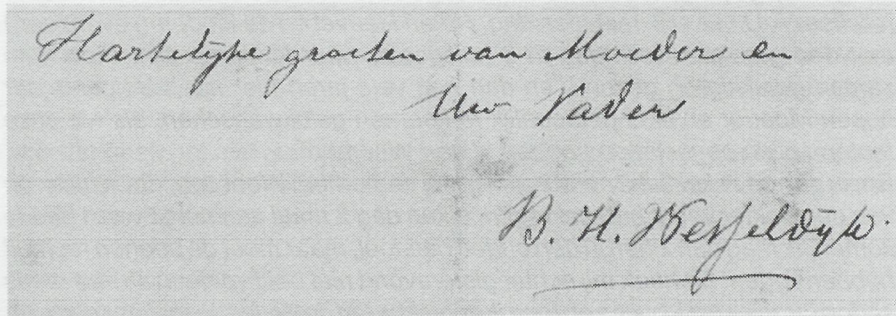 Hartelijke groeten van Moeder en
Uw Vader
B. H. Wesseldijk.